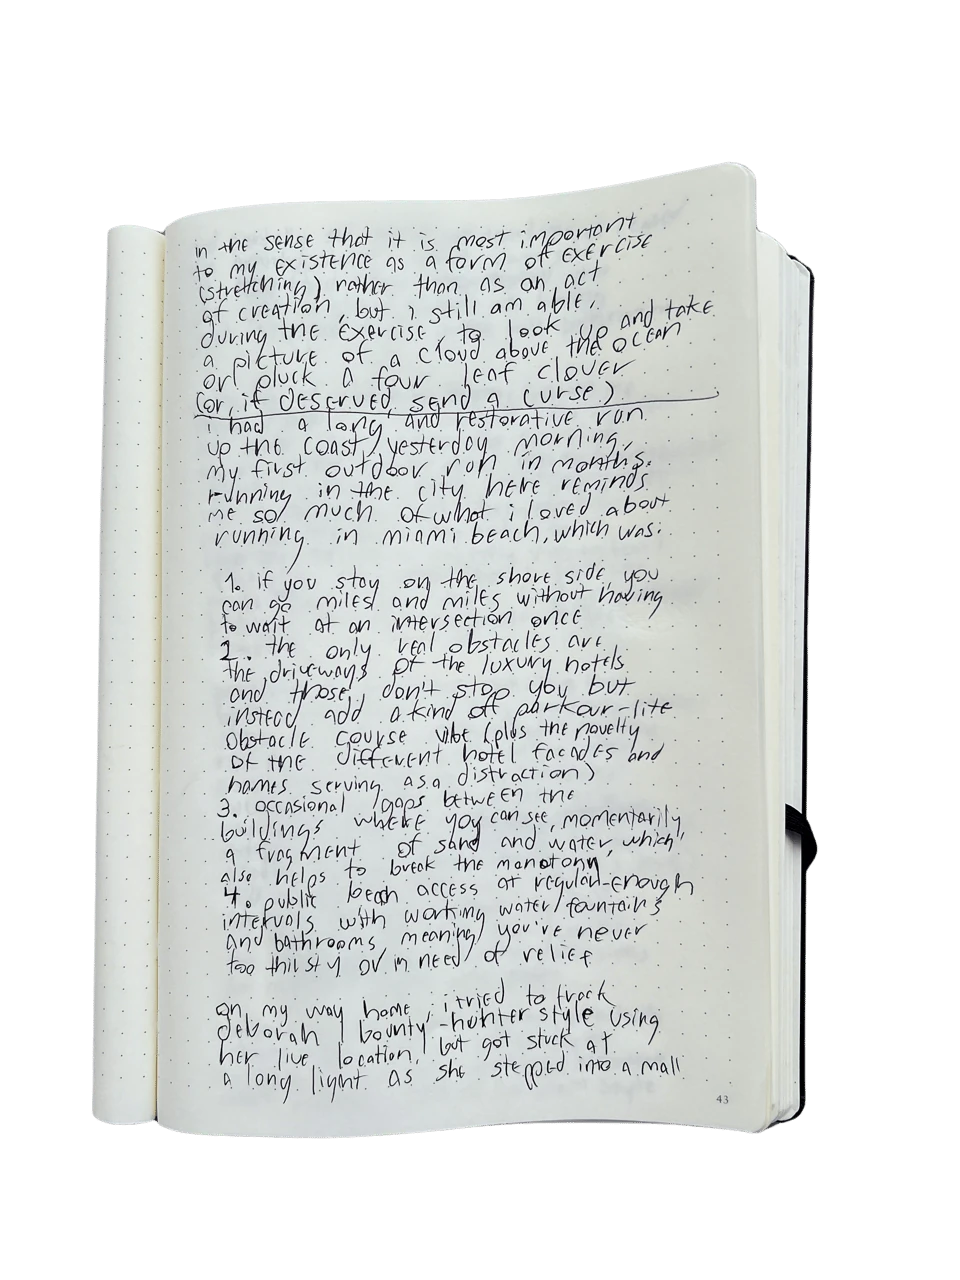 in the sense that it is most important
to my existence as a form of exercise
(stretching) rather than as an act
of creation, but i still am able,
during the exercise, to look up and take
a picture of a cloud above the ocean
or pluck a four leaf clover
(or, if deserved, send a curse)
i had a long and restorative run
up the coast yesterday morning,
my first outdoor run in months.
running in the city here reminds
me so much of what i loved about
running in miami beach, which was:
1. if you stay on the shore side, you
can go miles and miles without having
to wait at an intersection once
2. the only real obstacles are
the driveways of the luxury hotels
and those don't stop you but
instead add a kind of parkour-lite
obstacle course vibe (plus the novelty
of the different hotel facades and
names serving as a distraction)
3. occasional gaps between the
buildings where you can see, momentarily
a fragment of sand and water, which
also helps to break the monotony
4. public beach access at regular-enough
intervals with working water fountains
and bathrooms, meaning you've never
too thirsty or in need of relief
on my way home, i tried to track
deborah bounty-hunter style using
her live location, but got stuck at
a long light as she stepped into a mall
43